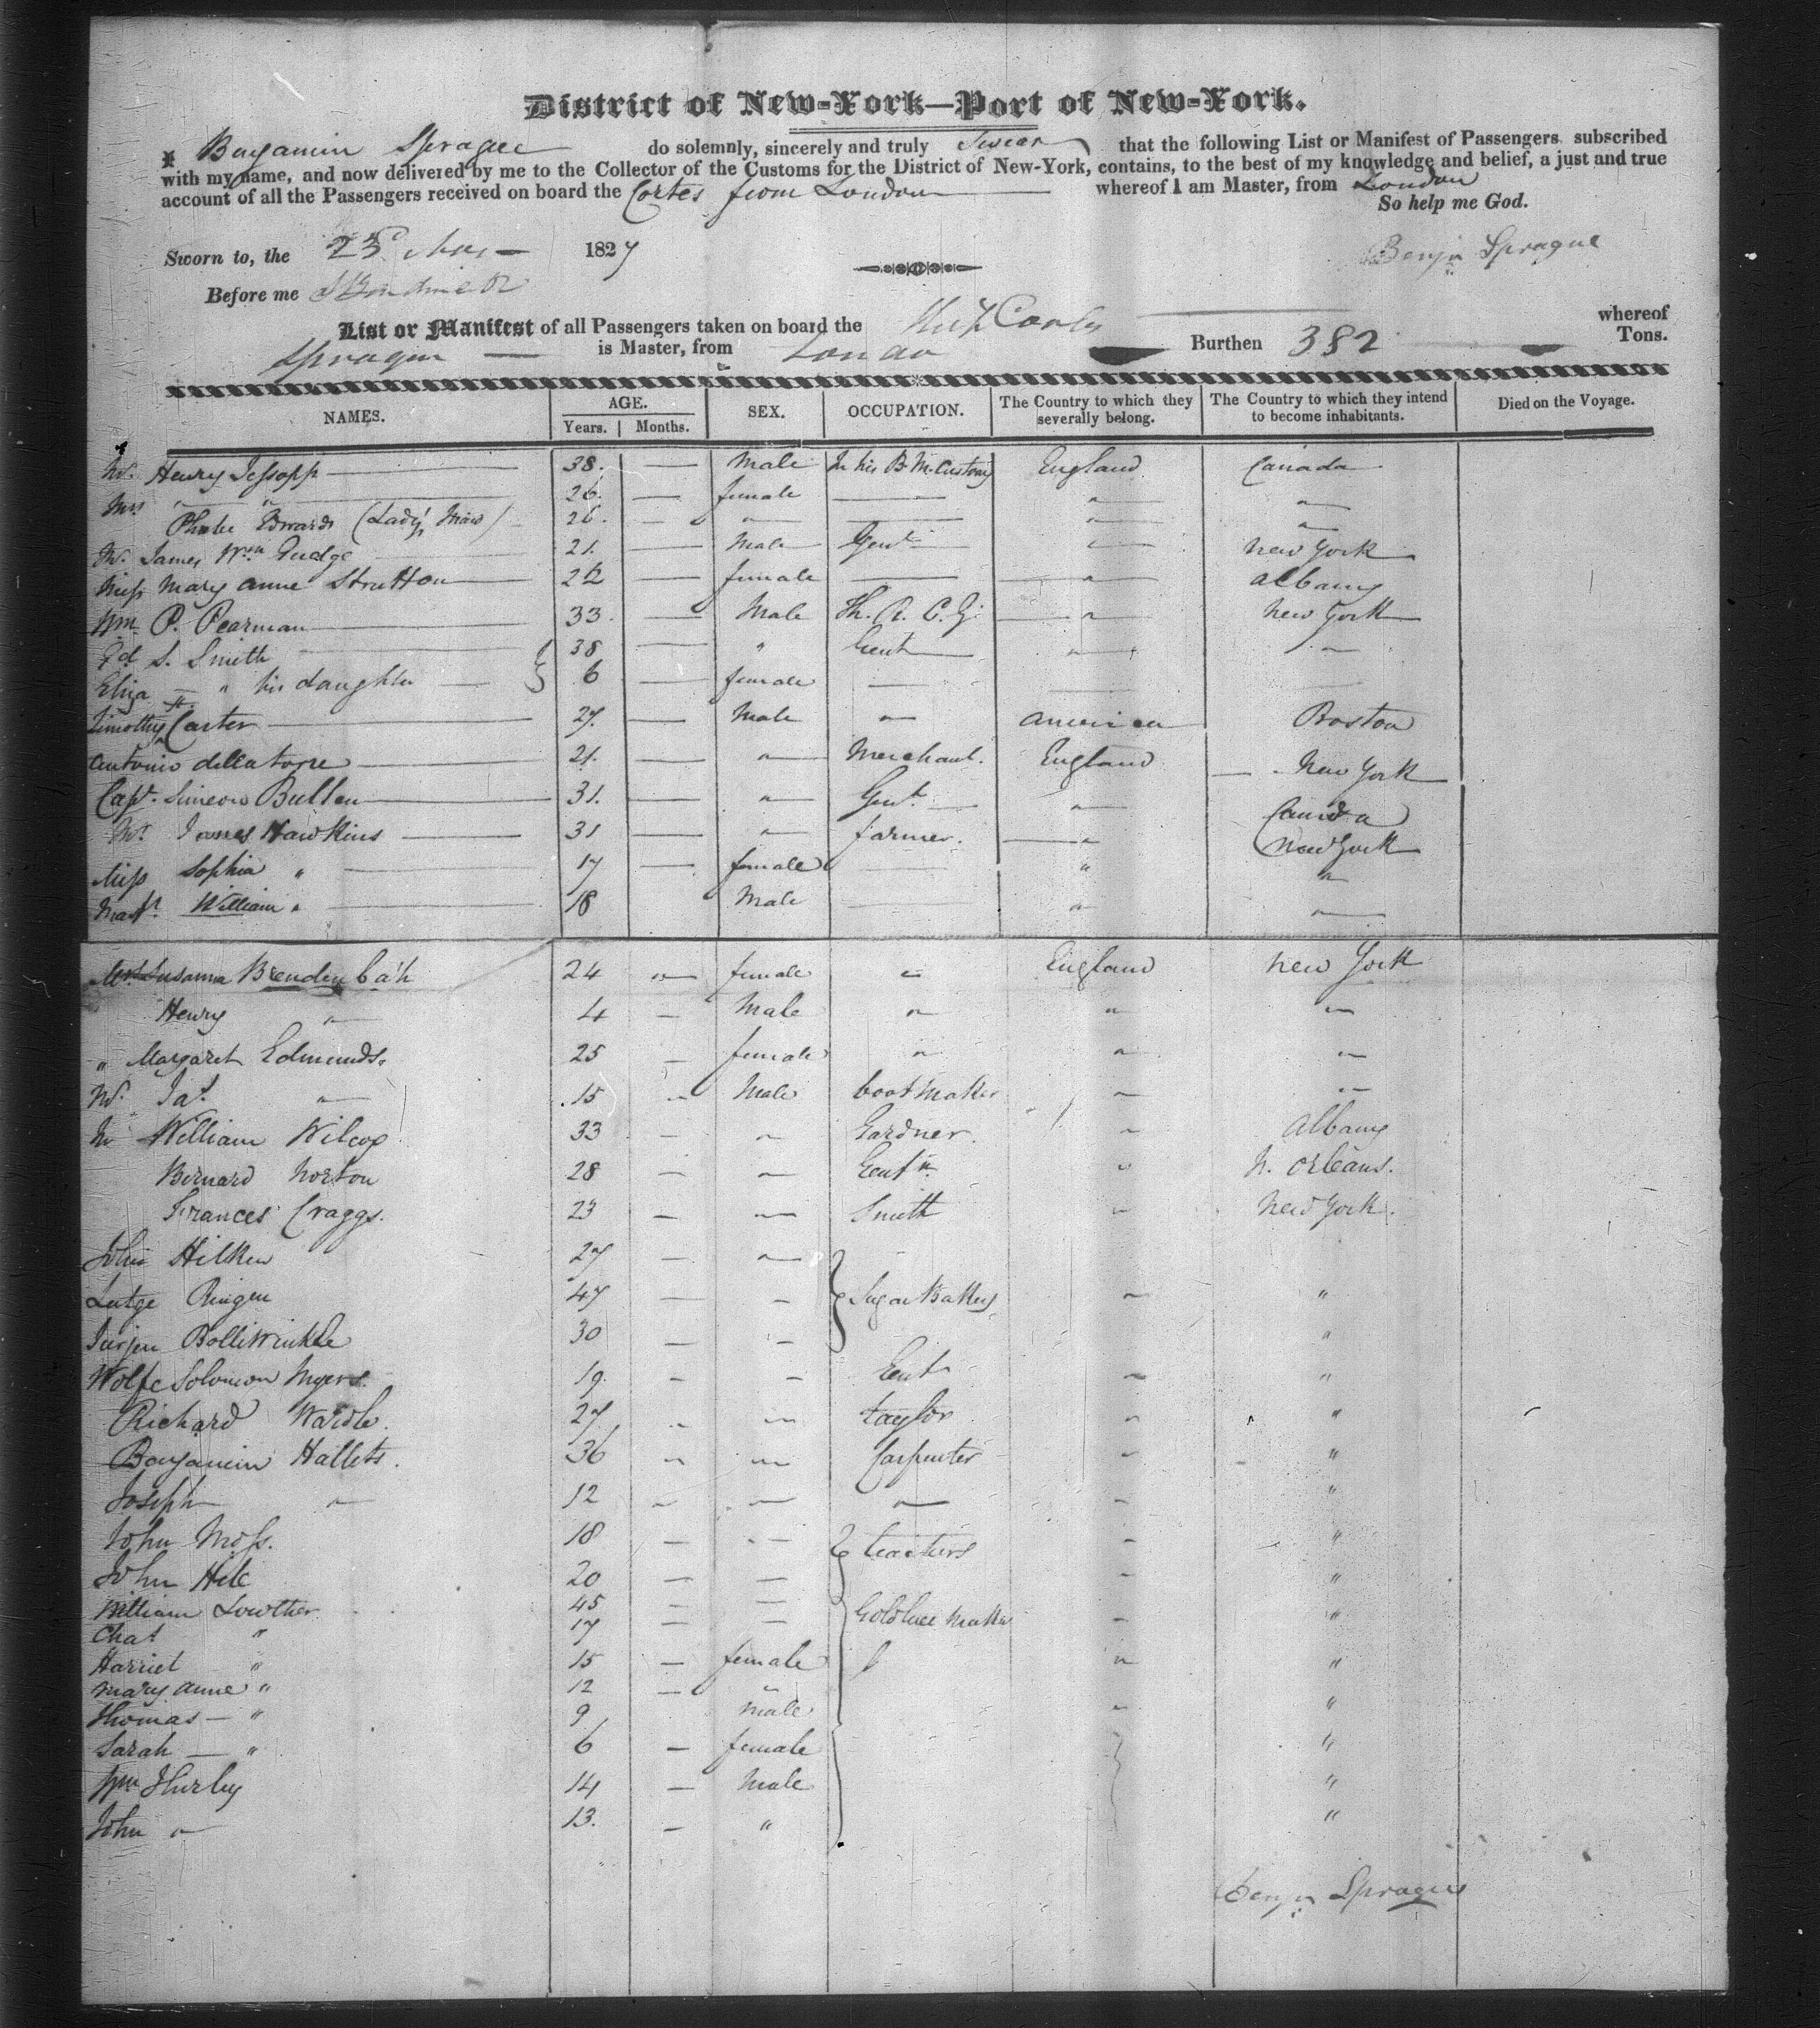 District of New-York—Port of New-York.
I Benjamin Sprague do solemnly, sincerely and truly Swear that the following List or Manifest of Passengers subscribed
with my name, and now delivered by me to the Collector of the Customs for the District of New-York, contains, to the best of my knowledge and belief, a just and true
account of all the Passengers received on board the Cortes from London whereof I am Master, from London
So help me God.
Sworn to, the 23d 1827
Benjn Sprague
Before me
List or Manifest of all Passengers taken on board the Ship Cortes whereof
Sprague is Master, from London Burthen 382 Tons.
NAMES. AGE. Years. Months. SEX. OCCUPATION. The Country to which they severally belong. The Country to which they intend to become inhabitants. Died on the Voyage.
Mr. Henry Jessopp 38. Male In his B. M. Customs England Canada
Mrs " " 26. female " "
Phebe Edwards (Lady's Maid) 26. " " "
Mr. James Wm Judge 21. Male Gent " New York
Miss Mary Anne Strutton 22 female " Albany
Wm P. Pearman 33. Male Th. R. C. G. " New York
Ed S. Smith 38 " Gent " "
Eliza " his daughter 6 female
Timothy H. Carter 27. Male " America Boston
Antonio dellatorre 21. " Merchant. England New York
Capt. Simeon Bullen 31. " Gent. " Canada
Mr. James Hawkins 31 " farmer. " New York
Miss Sophia " 17 female " "
Mastr William " 18 Male " "
Mrs. Susanna Brendenbah 24 " female " England New York
Henry " 4 Male " " "
" Margaret Edmunds. 25 female " " "
Mr. Jas " 15 " Male bootmaker " "
Mr William Wilcox 33 " Gardner. " Albany
Bernard Norton 28 " Gentn. " N. Orleans.
Frances Craggs. 23 " Smith " New York.
John Hilken 27 "
Lutge Ringen 47 " Sugar Bakers " "
Jurjen Bolliwinkle 30 " "
Wolfe Solomon Myers. 19. " Gent " "
Richard Wardle. 27 " " taylor " "
Benjamin Hallets. 36 " " Carpenter " "
Joseph " 12 " " " " "
John Moss. 18 " teachers " "
John Hile 20 " "
William Lowther 45 Goldlace Maker " "
Chas " 17
Harriet " 15 female " "
Mary Anne " 12 "
Thomas " 9 male " "
Sarah " 6 female "
Wm Hurley 14 Male "
John " 13. " "
Benjn Sprague